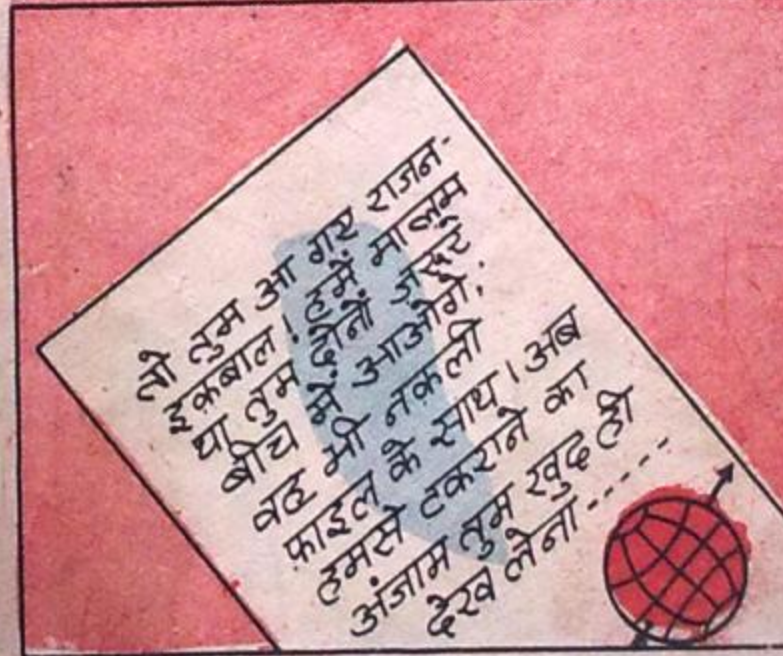 तो तुम आ गए राजन-
इक़बाल! हमें मालूम
था तुम दोनों ज़रूर
बीच में आओगे;
वह भी नक़ली
फ़ाइल के साथ। अब
हमसे टकराने का
अंजाम तुम खुद ही
देख लेना-----